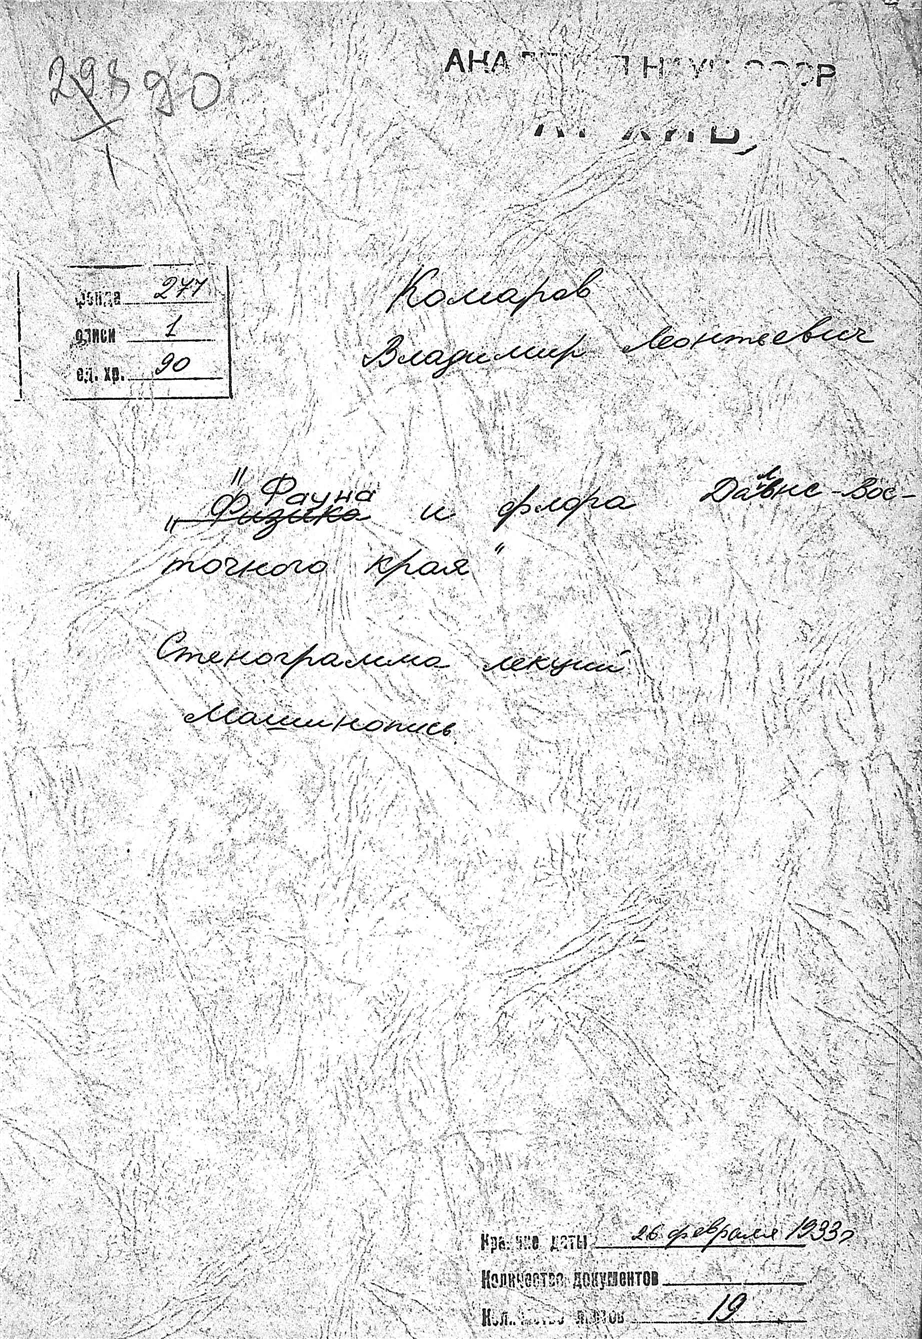 293 90
1
АКАДЕМИЯ НАУК СССР
АРХИВ
фонда 277
описи 1
ед. хр. 90
Комаров
Владимир Леонтьевич
"Фауна
„Физика и флора Дальне-Вос-
точного края"
Стенограмма лекций
Машинопись
Крайние даты 26 февраля 1933г
Количество документов
Количество листов 19